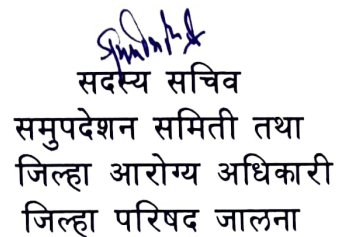 सदस्य सचिव
समुपदेशन समिती तथा
जिल्हा आरोग्य अधिकारी
जिल्हा परिषद जालना